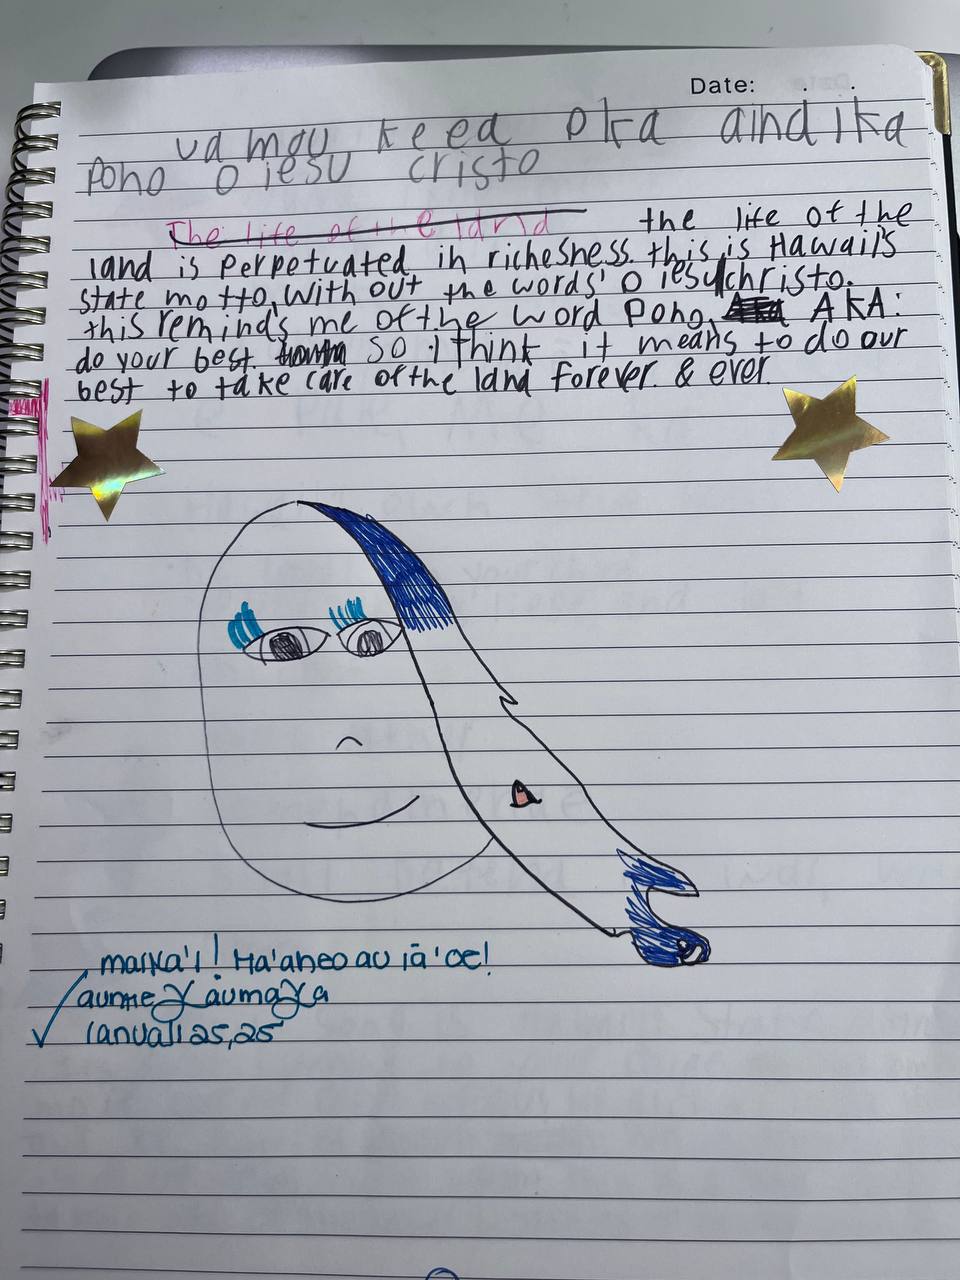 Date: . .
va mau ke ea oka aind ika
Pono o iesu cristo
The life of the land the life of the
land is perpetuated in richesness. this is Hawaii's
state motto, with out the words' O iesu christo.
this reminds me of the word Pono, AKA:
do your best. so i think it means to do our
best to take care of the land forever & ever.
maika'i! Ha'aheo au iā 'oe!
Ianuali 25, 25